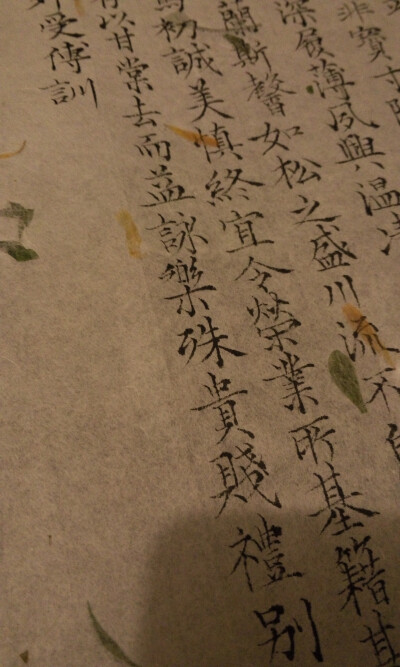 非寶寸
深履薄夙興温凊
蘭斯馨如松之盛川流不
初誠美慎終宜令榮業所基籍甚
以甘棠去而益詠樂殊貴賤禮別
外受傅訓